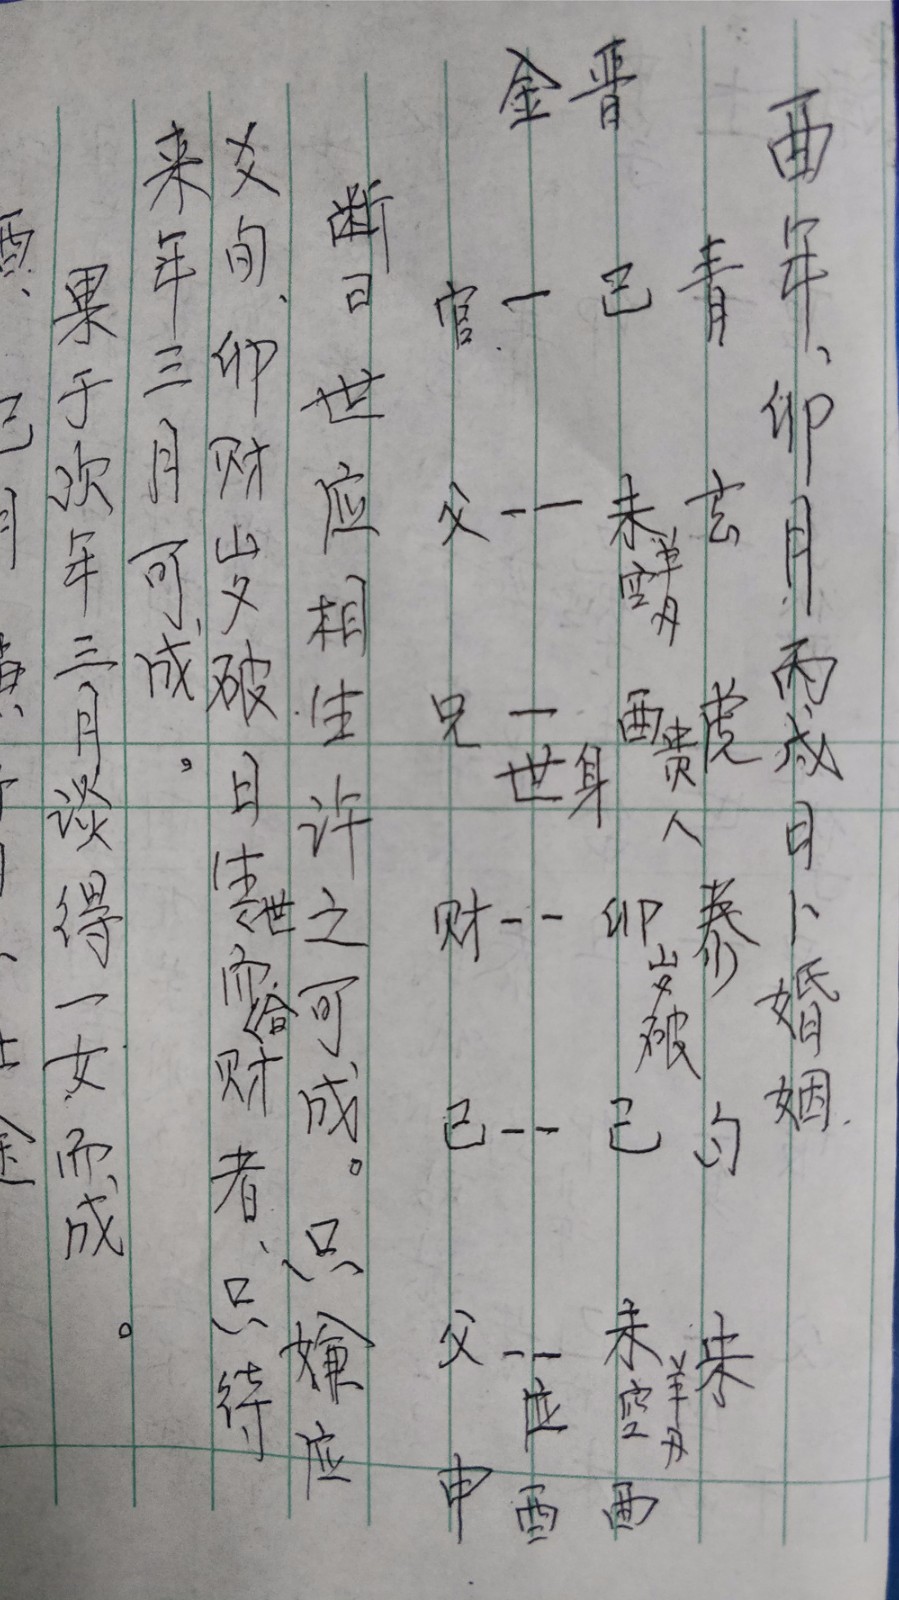 酉年、卯月丙戌日卜婚姻.
青 玄 虎 泰 勾 朱
晋 巳 未 空 羊刃 酉 贵人 卯 岁破 巳 未 空 羊刃 酉
金 一 -- 一 世身 -- -- -- 应 酉
官 父 兄 财 已 父 申
断曰世应相生许之可成。只嫌应
爻旬、卯财岁破日生世而合财者、只待
来年三月可成。
果于次年三月谈得一女而成。
酉、巳月